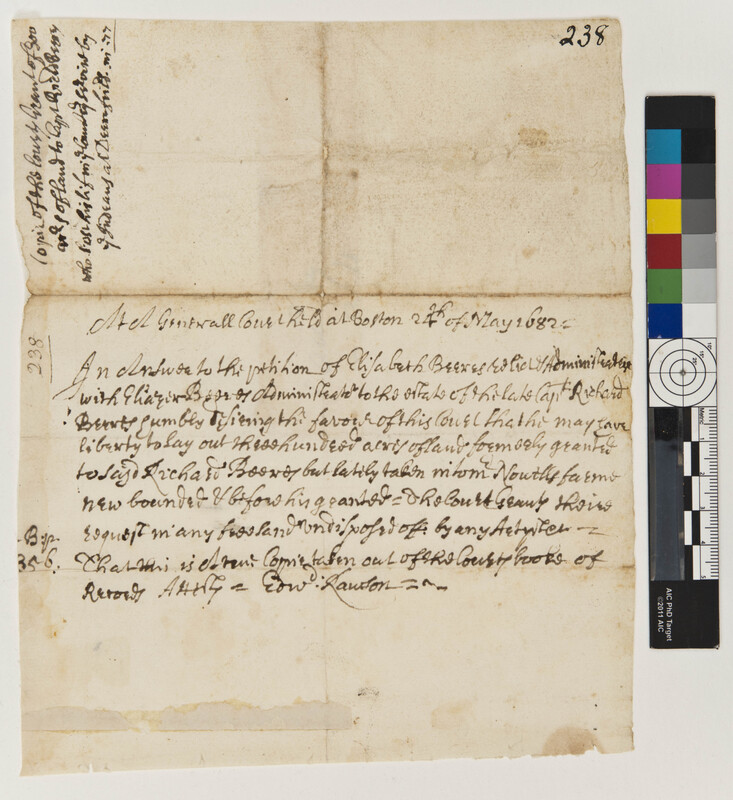 238
Copie of the Court Grant of 300
acrs of land to Capt Rich Beers
who lost his life in ye Countrys service by
ye Indeans at Deerfeild in 77
238
At A Generall Court held at Boston 24th of May 1682
In Answer to the petition of Elisabeth Beeres Relict & Administratrix
with Eliazer Beeres Administrator to the estate of the late Capt Richard
Beeres humbly desiring the favour of this Court that she may have
liberty to lay out three hundred acres of land formerly granted
to sayd Richard Beeres but lately taken into mr Nowells farme
new bounded & before his granted = The Court Grants theire
request in any free land undisposed of by any
356.
That this is A true Copie taken out of the Courts booke of
Records Attests = Edwd Rawson =
AIC PhD Target
©2011 AIC